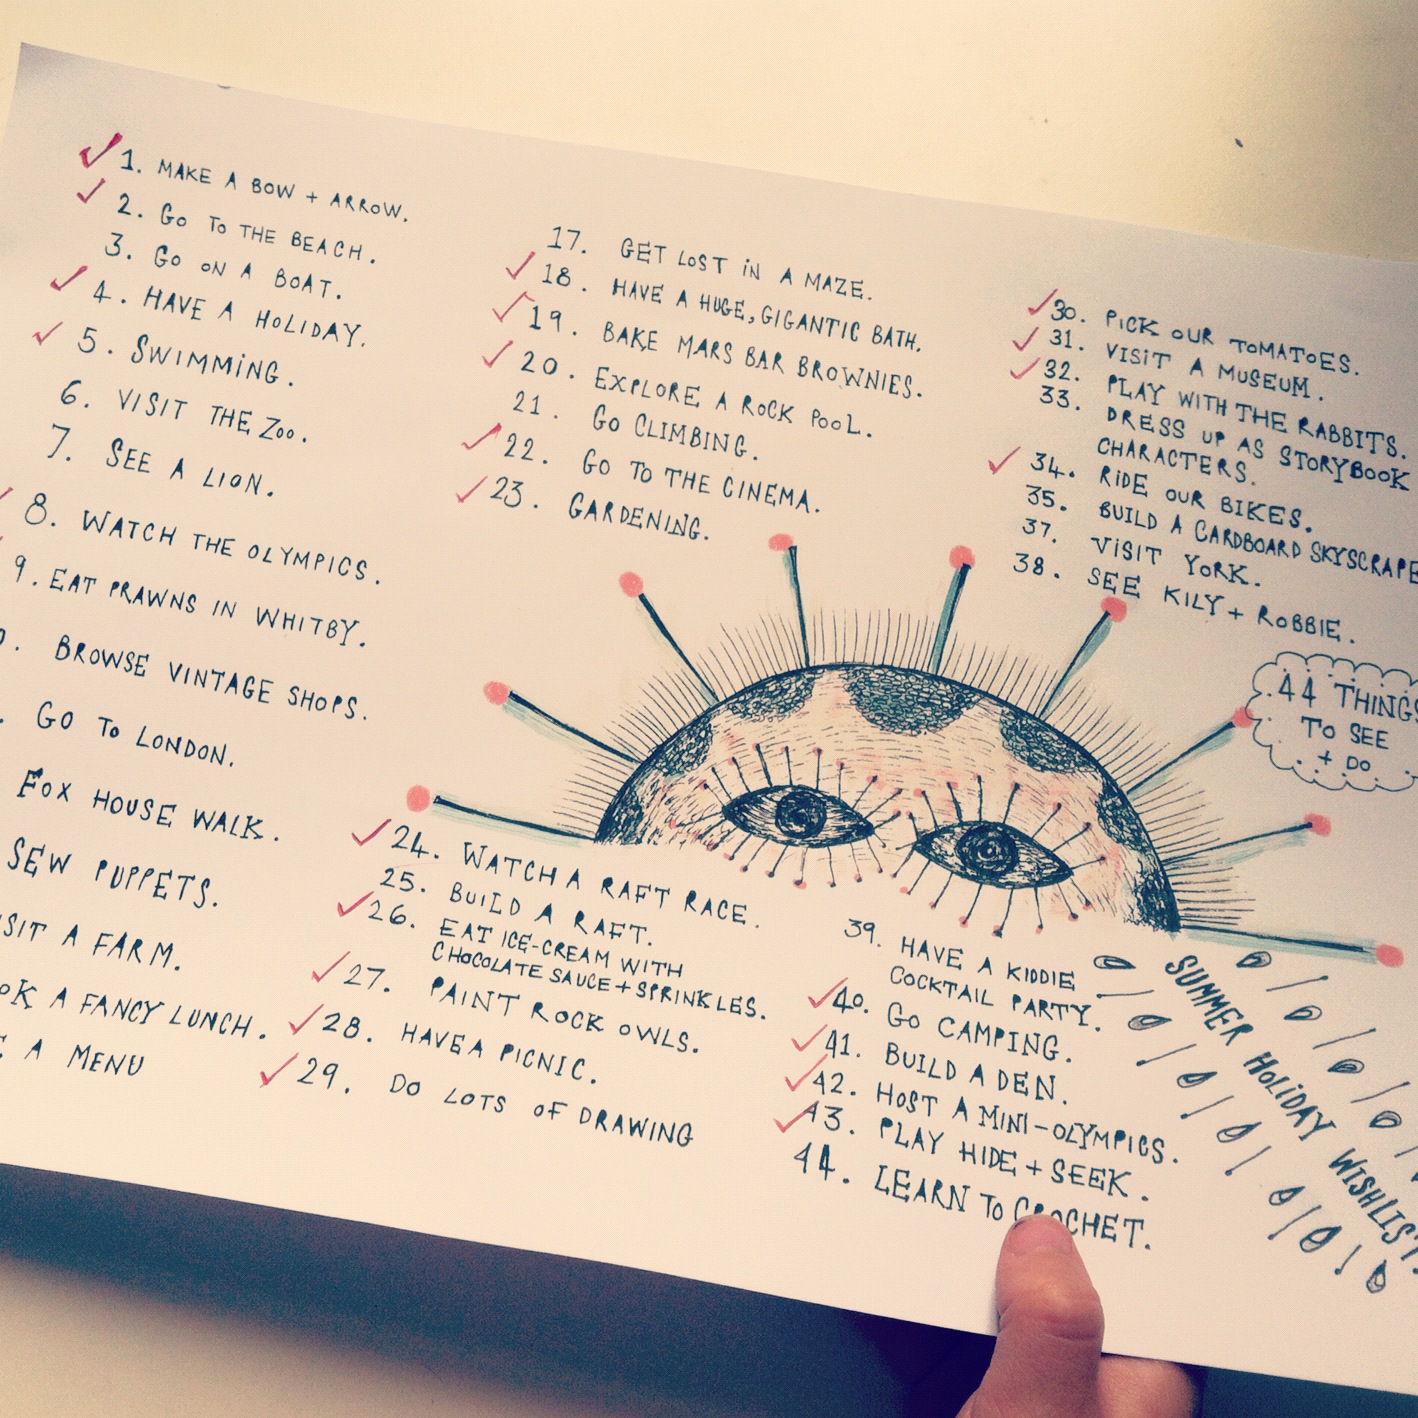 1. MAKE A BOW + ARROW.
2. GO TO THE BEACH.
3. GO ON A BOAT.
4. HAVE A HOLIDAY.
5. SWIMMING.
6. VISIT THE ZOO.
7. SEE A LION.
8. WATCH THE OLYMPICS.
9. EAT PRAWNS IN WHITBY.
BROWSE VINTAGE SHOPS.
GO TO LONDON.
FOX HOUSE WALK.
SEW PUPPETS.
A FARM.
A FANCY LUNCH.
A MENU
17. GET LOST IN A MAZE.
18. HAVE A HUGE, GIGANTIC BATH.
19. BAKE MARS BAR BROWNIES.
20. EXPLORE A ROCK POOL.
21. GO CLIMBING.
22. GO TO THE CINEMA.
23. GARDENING.
24. WATCH A RAFT RACE.
25. BUILD A RAFT.
26. EAT ICE-CREAM WITH
CHOCOLATE SAUCE + SPRINKLES.
27. PAINT ROCK OWLS.
28. HAVE A PICNIC.
29. DO LOTS OF DRAWING
30. PICK OUR TOMATOES.
31. VISIT A MUSEUM.
32. PLAY WITH THE RABBITS.
33. DRESS UP AS STORYBOOK
CHARACTERS.
34. RIDE OUR BIKES.
35. BUILD A CARDBOARD SKYSCRAPE
37. VISIT YORK.
38. SEE KILY + ROBBIE.
44 THINGS
TO SEE
+ DO
39. HAVE A KIDDIE
COCKTAIL PARTY.
40. GO CAMPING.
41. BUILD A DEN.
42. HOST A MINI-OLYMPICS.
43. PLAY HIDE + SEEK.
44. LEARN TO CROCHET.
SUMMER HOLIDAY WISHLIST.